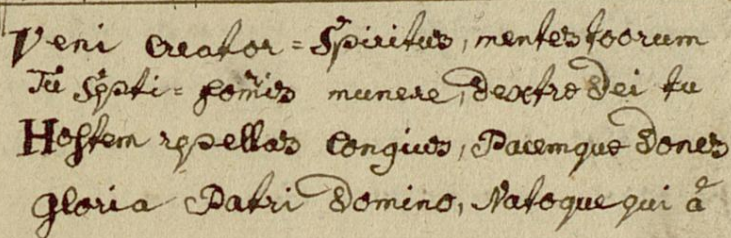 Veni Creator = Spiritus, mentes toorum
Tu Septi = formis munere, dextre Dei tu
Hostem repellas longius, Pacemque dones
Gloria Patri Domino, Natoque qui à